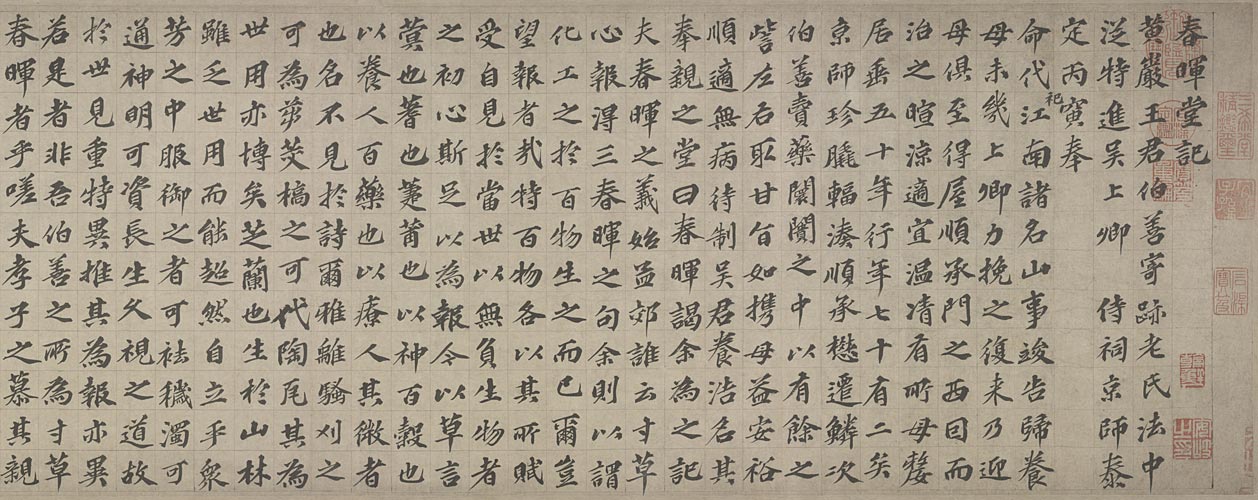 春暉堂記
黃巖王君伯善寄跡老氏法中
從特進吳上卿 侍祠京師泰
定丙寅奉
命代祀江南諸名山事竣告歸養
母未幾上卿力挽之復来乃迎
母俱至得屋順承門之西因而
治之暄涼適宜温凊有所母嫠
居垂五十年行年七十有二矣
京師珍膬輻湊順承懋遷鱗次
伯善賣藥闤闠之中以有餘之
訾左右取甘旨如携母益安裕
順適無病待制吳君養浩名其
奉親之堂曰春暉謁余為之記
夫春暉之義始孟郊誰云寸草
心報得三春暉之句余則以謂
化工之於百物生之而已爾豈
望報者哉特百物各以其所賦
受自見於當世以無負生物者
之初心斯足以為報今以草言
蓂也蓍也萐莆也以神百穀也
以養人百藥也以療人其微者
也名不見於詩爾雅離騷刈之
可為芻茭槁之可代陶瓦其為
世用亦博矣芝蘭也生於山林
雖乏世用而能超然自立乎衆
芳之中服御之者可袪穢濁可
通神明可資長生久視之道故
於世見重特異推其為報亦異
若是者非吾伯善之所為寸草
春暉者乎嗟夫孝子之慕其親